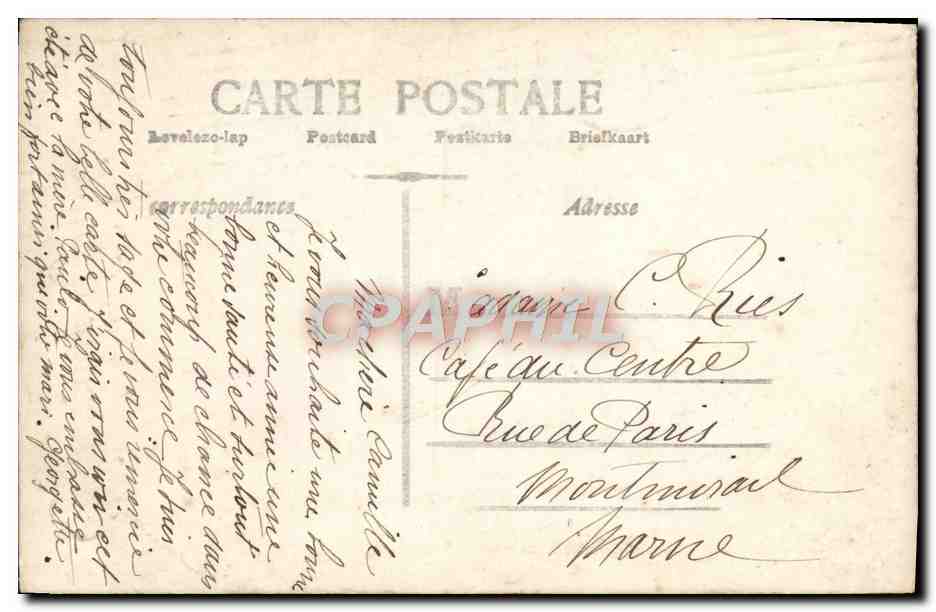 CARTE POSTALE
Levelezo-lap Postcard Postkarte Briefkaart
Correspondance
Adresse
Ma chère Camille
Je vous souhaite une bonne
et heureuse année une
bonne santé et surtout
beaucoup de chance dans
votre commerce. Je suis
toujours très sage et je vous remercie
de votre belle carte, j'irais vous voir cet
été avec la mère. Paulo vous embrasse
bien fort ainsi que votre mari. Georgette
Madame C. Ries
Café du Centre
Rue de Paris
Montmirail
Marne
CPAPHIL